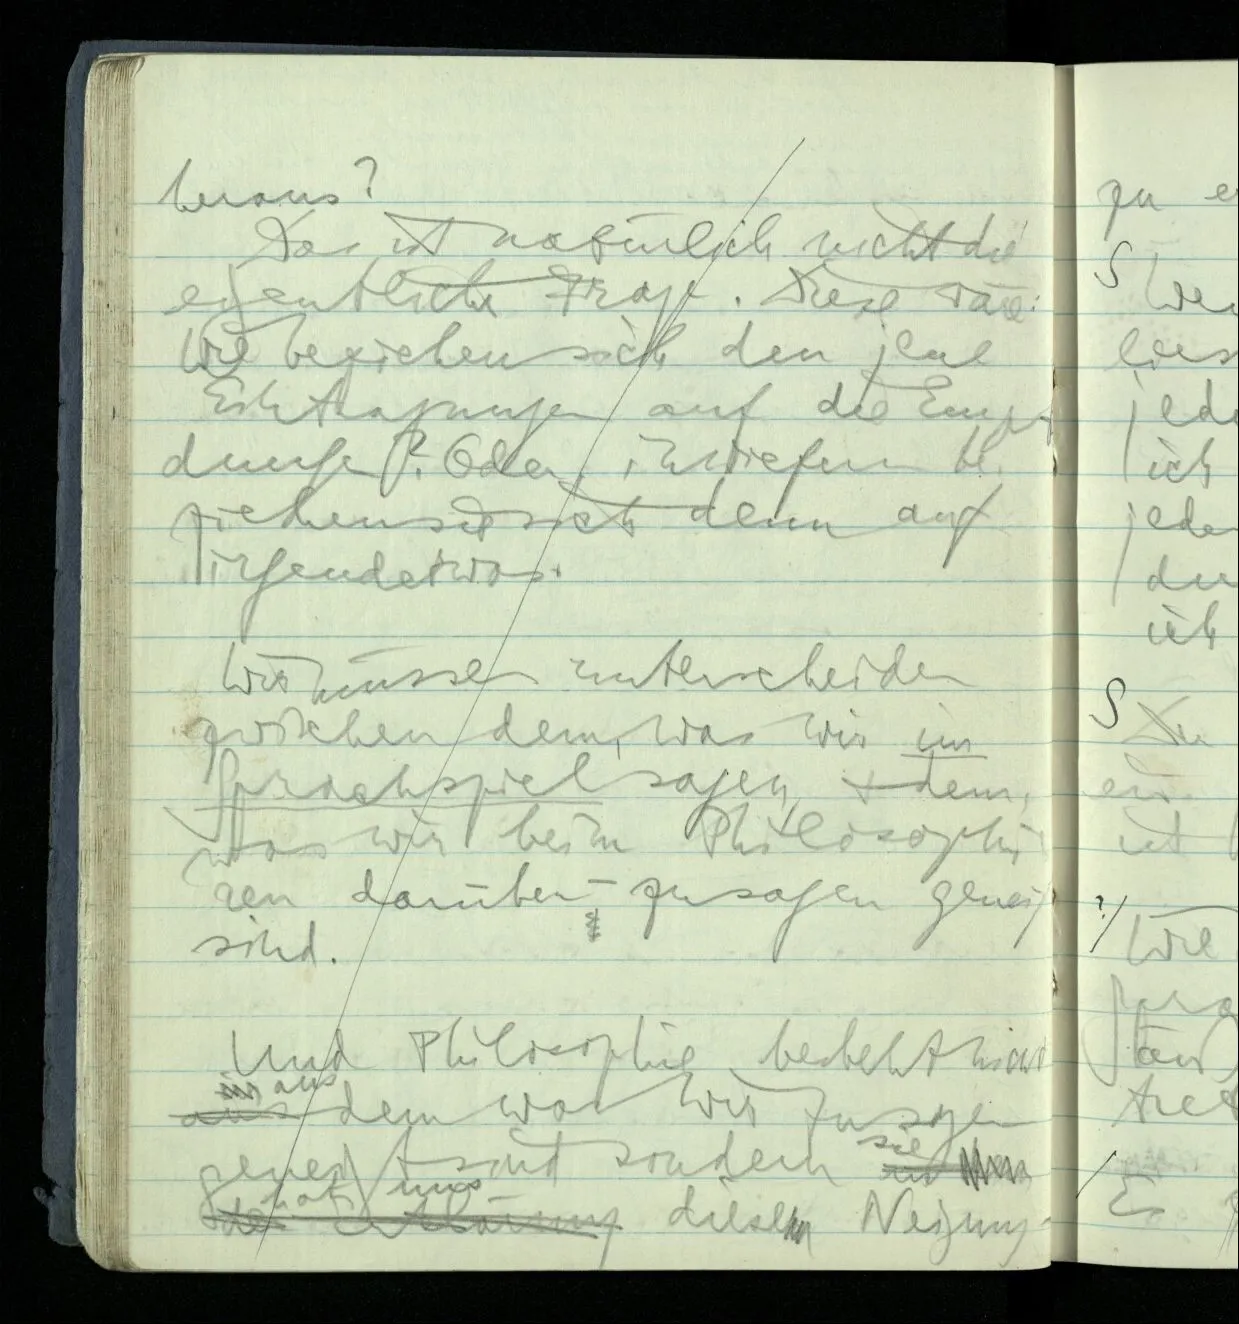 heraus?
Das ist natürlich nicht die
eigentliche Frage. Diese wäre:
Wie beziehen sich den jene
auf die Empfin
dungen? Oder, inwiefern be
ziehen sie sich denn auf
irgendetwas.
Wir müssen unterscheiden
zwischen dem, was wir im
Sprachspiel sagen, + dem,
was wir beim Philosophie
ren darüber – zu sagen geneigt
sind.
Und Philosophie besteht nicht
in aus
aus dem was wir zu sagen
geneigt sind sondern sie
hat uns
der Erklärung diese Neigung
zu
S
jede
ich
jede
S
?/
Wie
/
Es